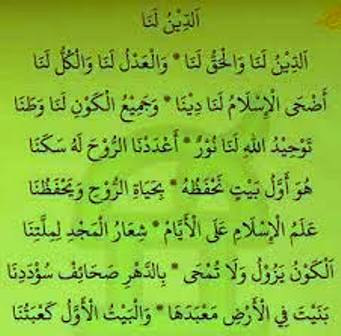 اَلدِّيْنُ لَنَا
اَلدِّيْنُ لَنَا وَالْحَقُّ لَنَا * وَالْعَدْلُ لَنَا وَالْكُلُّ لَنَا
أَضْحَى الْإِسْلَامُ لَنَا دِيْنَا * وَجَمِيْعُ الْكَوْنِ لَنَا وَطَنَا
تَوْحِيْدُ اللهِ لَنَا نُوْرٌ * أَعْدَدْنَا الرُّوْحَ لَهُ سَكَنَا
هُوَ أَوَّلُ بَيْتٍ نَحْفَظُهُ * بِحَيَاةِ الرُّوْحِ وَيَحْفَظُنَا
عَلَمُ الْإِسْلَامِ عَلَى الْأَيَّامِ * شِعَارُ الْمَجْدِ لِمِلَّتِنَا
اَلْكَوْنُ يَزُوْلُ وَلَا تُمْحَى * بِالدَّهْرِ صَحَائِفُ سُؤْدَدِنَا
بَنَيْتَ فِي الْأَرْضِ مَعْبَدَهَا * وَالْبَيْتُ الْأَوَّلُ كَعْبَتُنَا